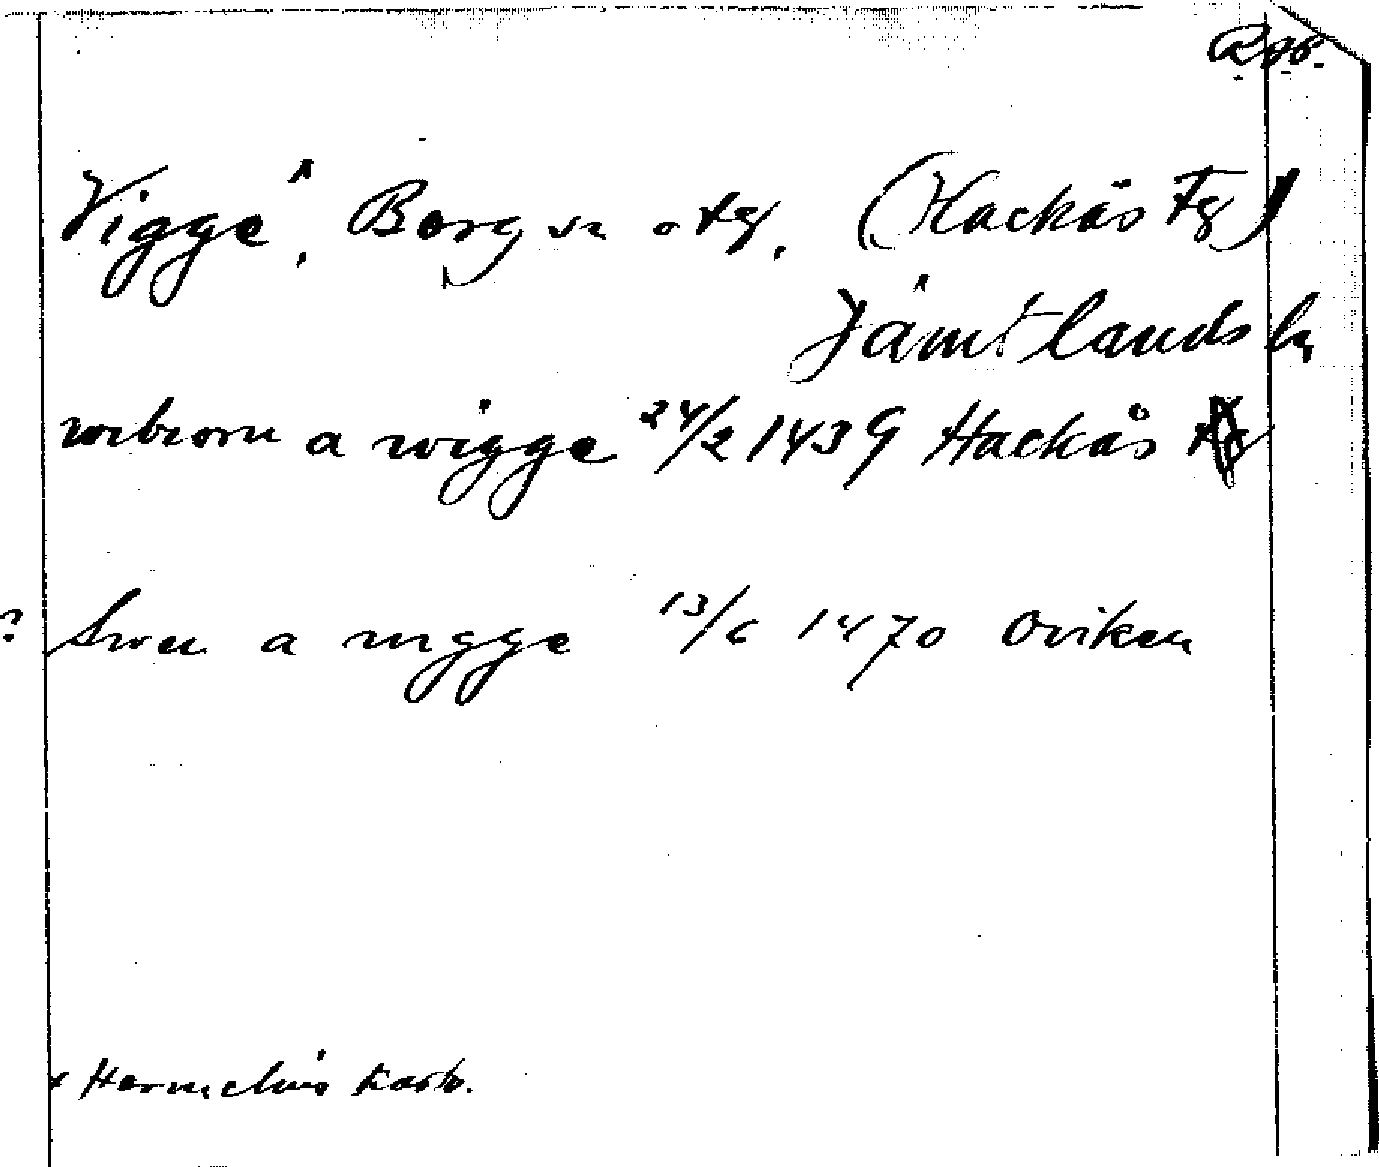 Rep.
Vigge, Bergs n otg. (Hackås Tg)
Jämtlands l.
vebiorn a wigge 24/2 1439 Hackås Tg
? Swen a vigge 13/6 1470 Oviken
x Hermelins karta.